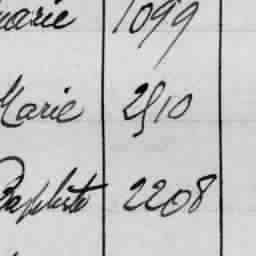 Marie 1099
Marie 2510
Baptiste 2208